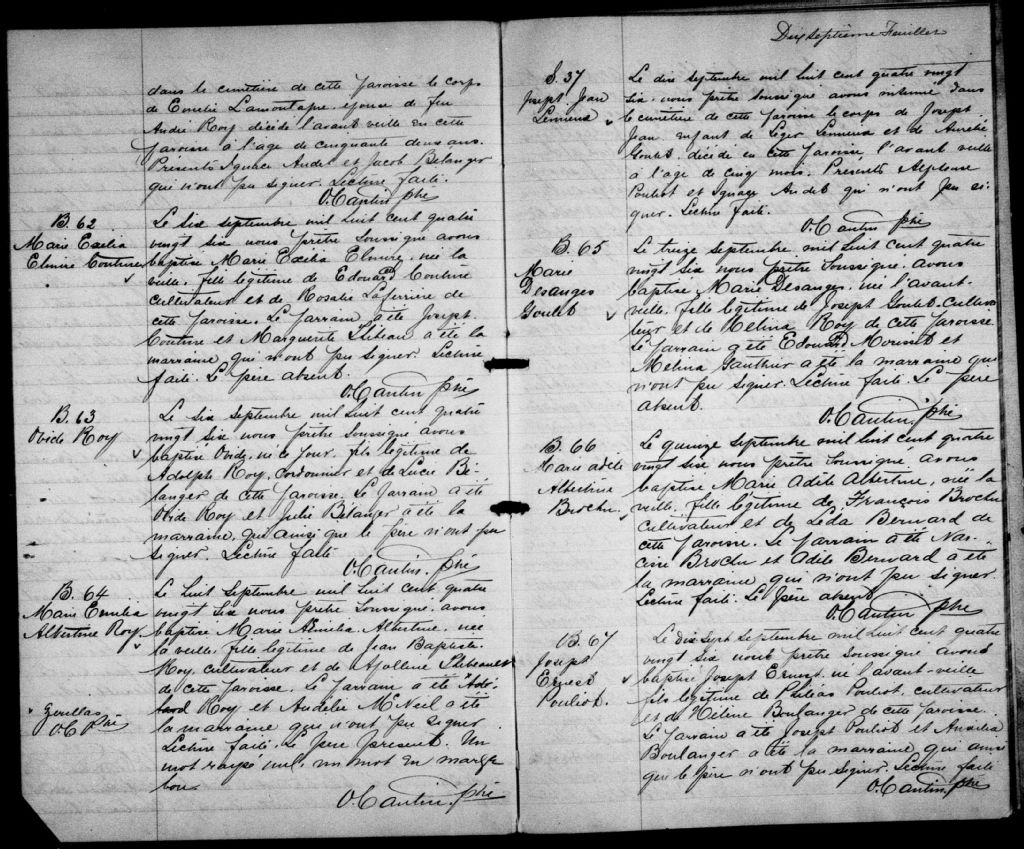 dans le cimetière de cette paroisse le corps
de Emelie Lamontagne, épouse de feu
André Roy décédé l'avant veille en cette
paroisse à l'age de cinquante deux ans.
Présents Ignace Audet et Jacob Bélanger
qui n'ont pu signer. Lecture faite.
O. Cantin ptre
B. 62
Marie Exélia
Elmire Couture
Le six septembre mil huit cent quatre
vingt six nous prêtre soussigné avons
baptisé Marie Exélia Elmire, née la
veille, fille légitime de Edouard Couture
cultivateur et de Rosalie Laferrière de
cette paroisse. Le parrain a été Joseph
Couture et Marguerite a été la
marraine, qui n'ont pu signer. Lecture
faite. Le père absent.
O. Cantin ptre
B. 63
Ovide Roy
Le six septembre mil huit cent quatre
vingt six nous prêtre soussigné avons
baptisé Ovide, né ce jour, fils légitime de
Adolph Roy, cordonnier et de Lucie Bé-
langer de cette paroisse. Le parrain a été
Ovide Roy et Julie Bélanger a été la
marraine, qui ainsi que le père n'ont pu
signer. Lecture faite
O. Cantin. ptre
B. 64
Marie Emilia
Albertine Roy
Le huit septembre mil huit cent quatre
vingt six nous prêtre soussigné avons
baptisé Marie Emilia Albertine, née
la veille, fille légitime de Jean Baptiste
Roy, cultivateur et de Apolline Thibeault
de cette paroisse. Le parrain a été
Roy et Audelie McNeil a été
la marraine qui n'ont pu signer
Lecture faite. Le père présent. Un
mot rayé nul, un mot en marge
bon.
O. Cantin. ptre
O C ptre
Dix septième Feuillet
S. 37
Joseph Jean
Lemieux
Le dix septembre mil huit cent quatre vingt
six, nous prêtre soussigné avons inhumé dans
le cimetière de cette paroisse le corps de Joseph
Jean enfant de Léger Lemieux et de Aurélie
Goulet, décédé en cette paroisse l'avant veille
à l'age de cinq mois. Présents Alphonse
Pouliot et Ignace Audet qui n'ont pu si-
gner. Lecture faite.
O. Cantin ptre
B. 65
Marie
Desanges
Goulet
Le treize septembre mil huit cent quatre
vingt six nous prêtre soussigné, avons
baptisé Marie Desanges, née l'avant-
veille, fille légitime de Joseph Goulet, cultiva-
teur et de Mélina Roy de cette paroisse.
Le parrain a été Edouard Mousset et
Mélina Gauthier a été la marraine qui
n'ont pu signer. Lecture faite. Le père
absent.
O. Cantin ptre
B. 66
Marie adèle
Albertine
Brochu
Le quinze septembre mil huit cent quatre
vingt six nous prêtre soussigné, avons
baptisé Marie Adèle Albertine, née la
veille, fille légitime de François Brochu
cultivateur et de Leda Bernard de
cette paroisse. Le parrain a été Nar-
cisse Brochu et Adèle Bernard a été
la marraine qui n'ont pu signer
Lecture faite. Le père absent
O. Cantin ptre
B. 67
Joseph
Ernest
Pouliot.
Le dix sept septembre mil huit cent quatre
vingt six nous prêtre soussigné avons
baptisé Joseph Ernest, né l'avant-veille
fils légitime de Pouliot, cultivateur
et de Hélène Boulanger de cette paroisse.
Le parrain a été Joseph Pouliot et
Boulanger a été la marraine, qui ainsi
que le père n'ont pu signer. Lecture faite
O. Cantin. ptre